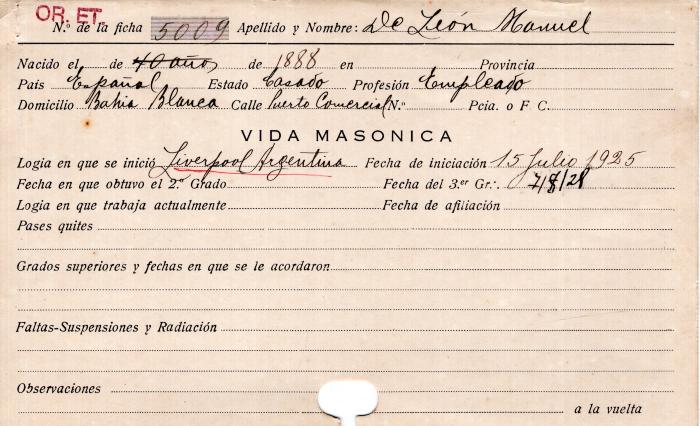 OR. ET.
N.º de la ficha 5009 Apellido y Nombre: De León Manuel
Nacido el de 40 años de 1888 en Provincia
País Español Estado Casado Profesión Empleado
Domicilio Bahia Blanca Calle Puerto Comercial N.º Pcia. o F C.
VIDA MASONICA
Logia en que se inició Liverpool Argentina Fecha de iniciación 15 Julio 1925
Fecha en que obtuvo el 2.º Grado Fecha del 3.er Gr∴. 7/8/28
Logia en que trabaja actualmente Fecha de afiliación
Pases quites
Grados superiores y fechas en que se le acordaron
Faltas-Suspensiones y Radiación
Observaciones
a la vuelta